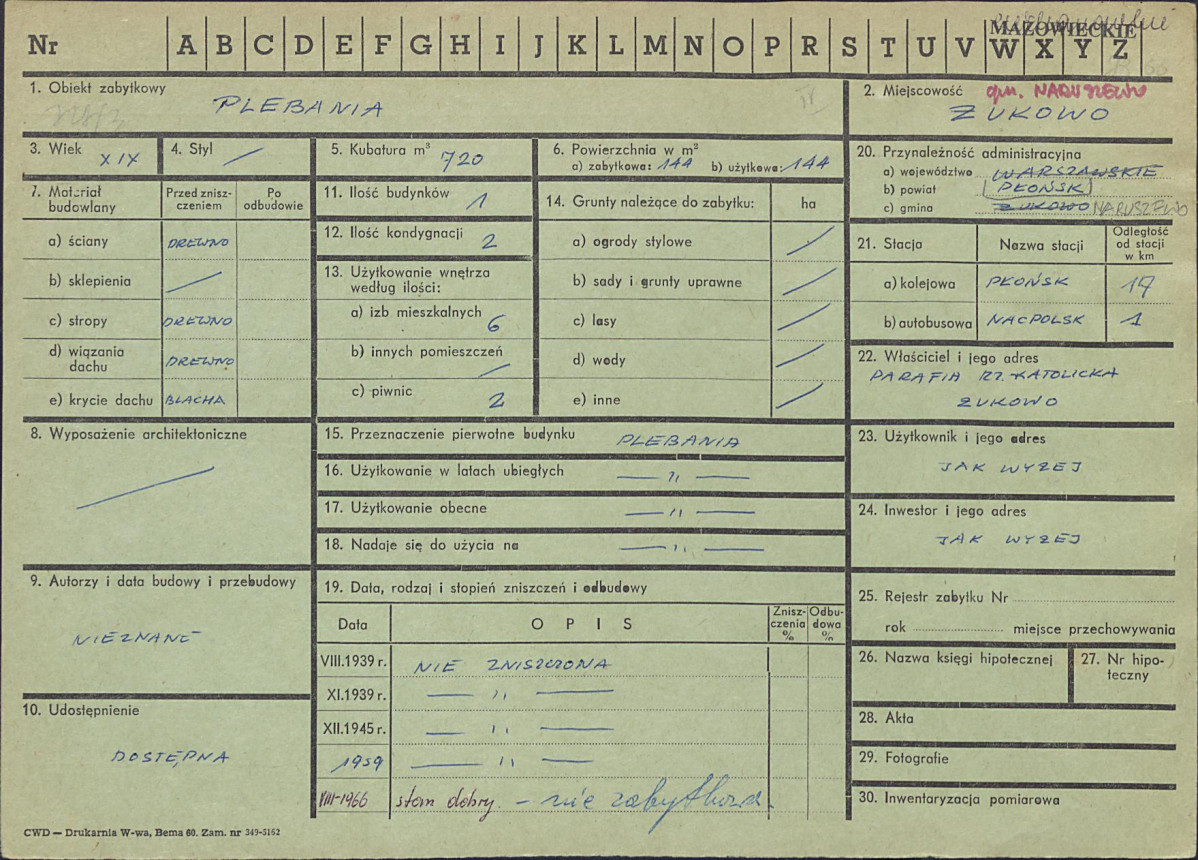 Nr A B C D E F G H I J K L M N O P R S T U V W X Y Z
MAZOWIECKIE
1. Obiekt zabytkowy
PLEBANIA
2. Miejscowość gm. NARUSZEWO
ŻUKOWO
3. Wiek XIX
4. Styl
5. Kubatura m³ 720
6. Powierzchnia w m²
a) zabytkowa: 144 b) użytkowa: 144
7. Materiał budowlany
Przed zniszczeniem
Po odbudowie
a) ściany DREWNO
b) sklepienia
c) stropy DREWNO
d) wiązania dachu DREWNO
e) krycie dachu BLACHA
8. Wyposażenie architektoniczne
9. Autorzy i data budowy i przebudowy
NIEZNANE
10. Udostępnienie
DOSTĘPNA
11. Ilość budynków 1
12. Ilość kondygnacji 2
13. Użytkowanie wnętrza
według ilości:
a) izb mieszkalnych 6
b) innych pomieszczeń
c) piwnic 2
14. Grunty należące do zabytku: ha
a) ogrody stylowe
b) sady i grunty uprawne
c) lasy
d) wody
e) inne
15. Przeznaczenie pierwotne budynku PLEBANIA
16. Użytkowanie w latach ubiegłych — " —
17. Użytkowanie obecne — " —
18. Nadaje się do użycia na — " —
19. Data, rodzaj i stopień zniszczeń i odbudowy
Data OPIS Zniszczenia % Odbudowa %
VIII.1939 r. NIE ZNISZCZONA
XI.1939 r. — " —
XII.1945 r. — " —
1959 — " —
VIII-1966 stan dobry. - nie zabytkowa.
20. Przynależność administracyjna
a) województwo WARSZAWSKIE
b) powiat PŁOŃSK
c) gmina ŻUKOWO NARUSZEWO
21. Stacja Nazwa stacji Odległość od stacji w km
a) kolejowa PŁOŃSK 17
b) autobusowa NACPOLSK 1
22. Właściciel i jego adres
PARAFIA RZ. KATOLICKA
ŻUKOWO
23. Użytkownik i jego adres
JAK WYŻEJ
24. Inwestor i jego adres
JAK WYŻEJ
25. Rejestr zabytku Nr
rok miejsce przechowywania
26. Nazwa księgi hipotecznej
27. Nr hipoteczny
28. Akta
29. Fotografie
30. Inwentaryzacja pomiarowa
CWD — Drukarnia W-wa, Bema 60. Zam. nr 349-5162